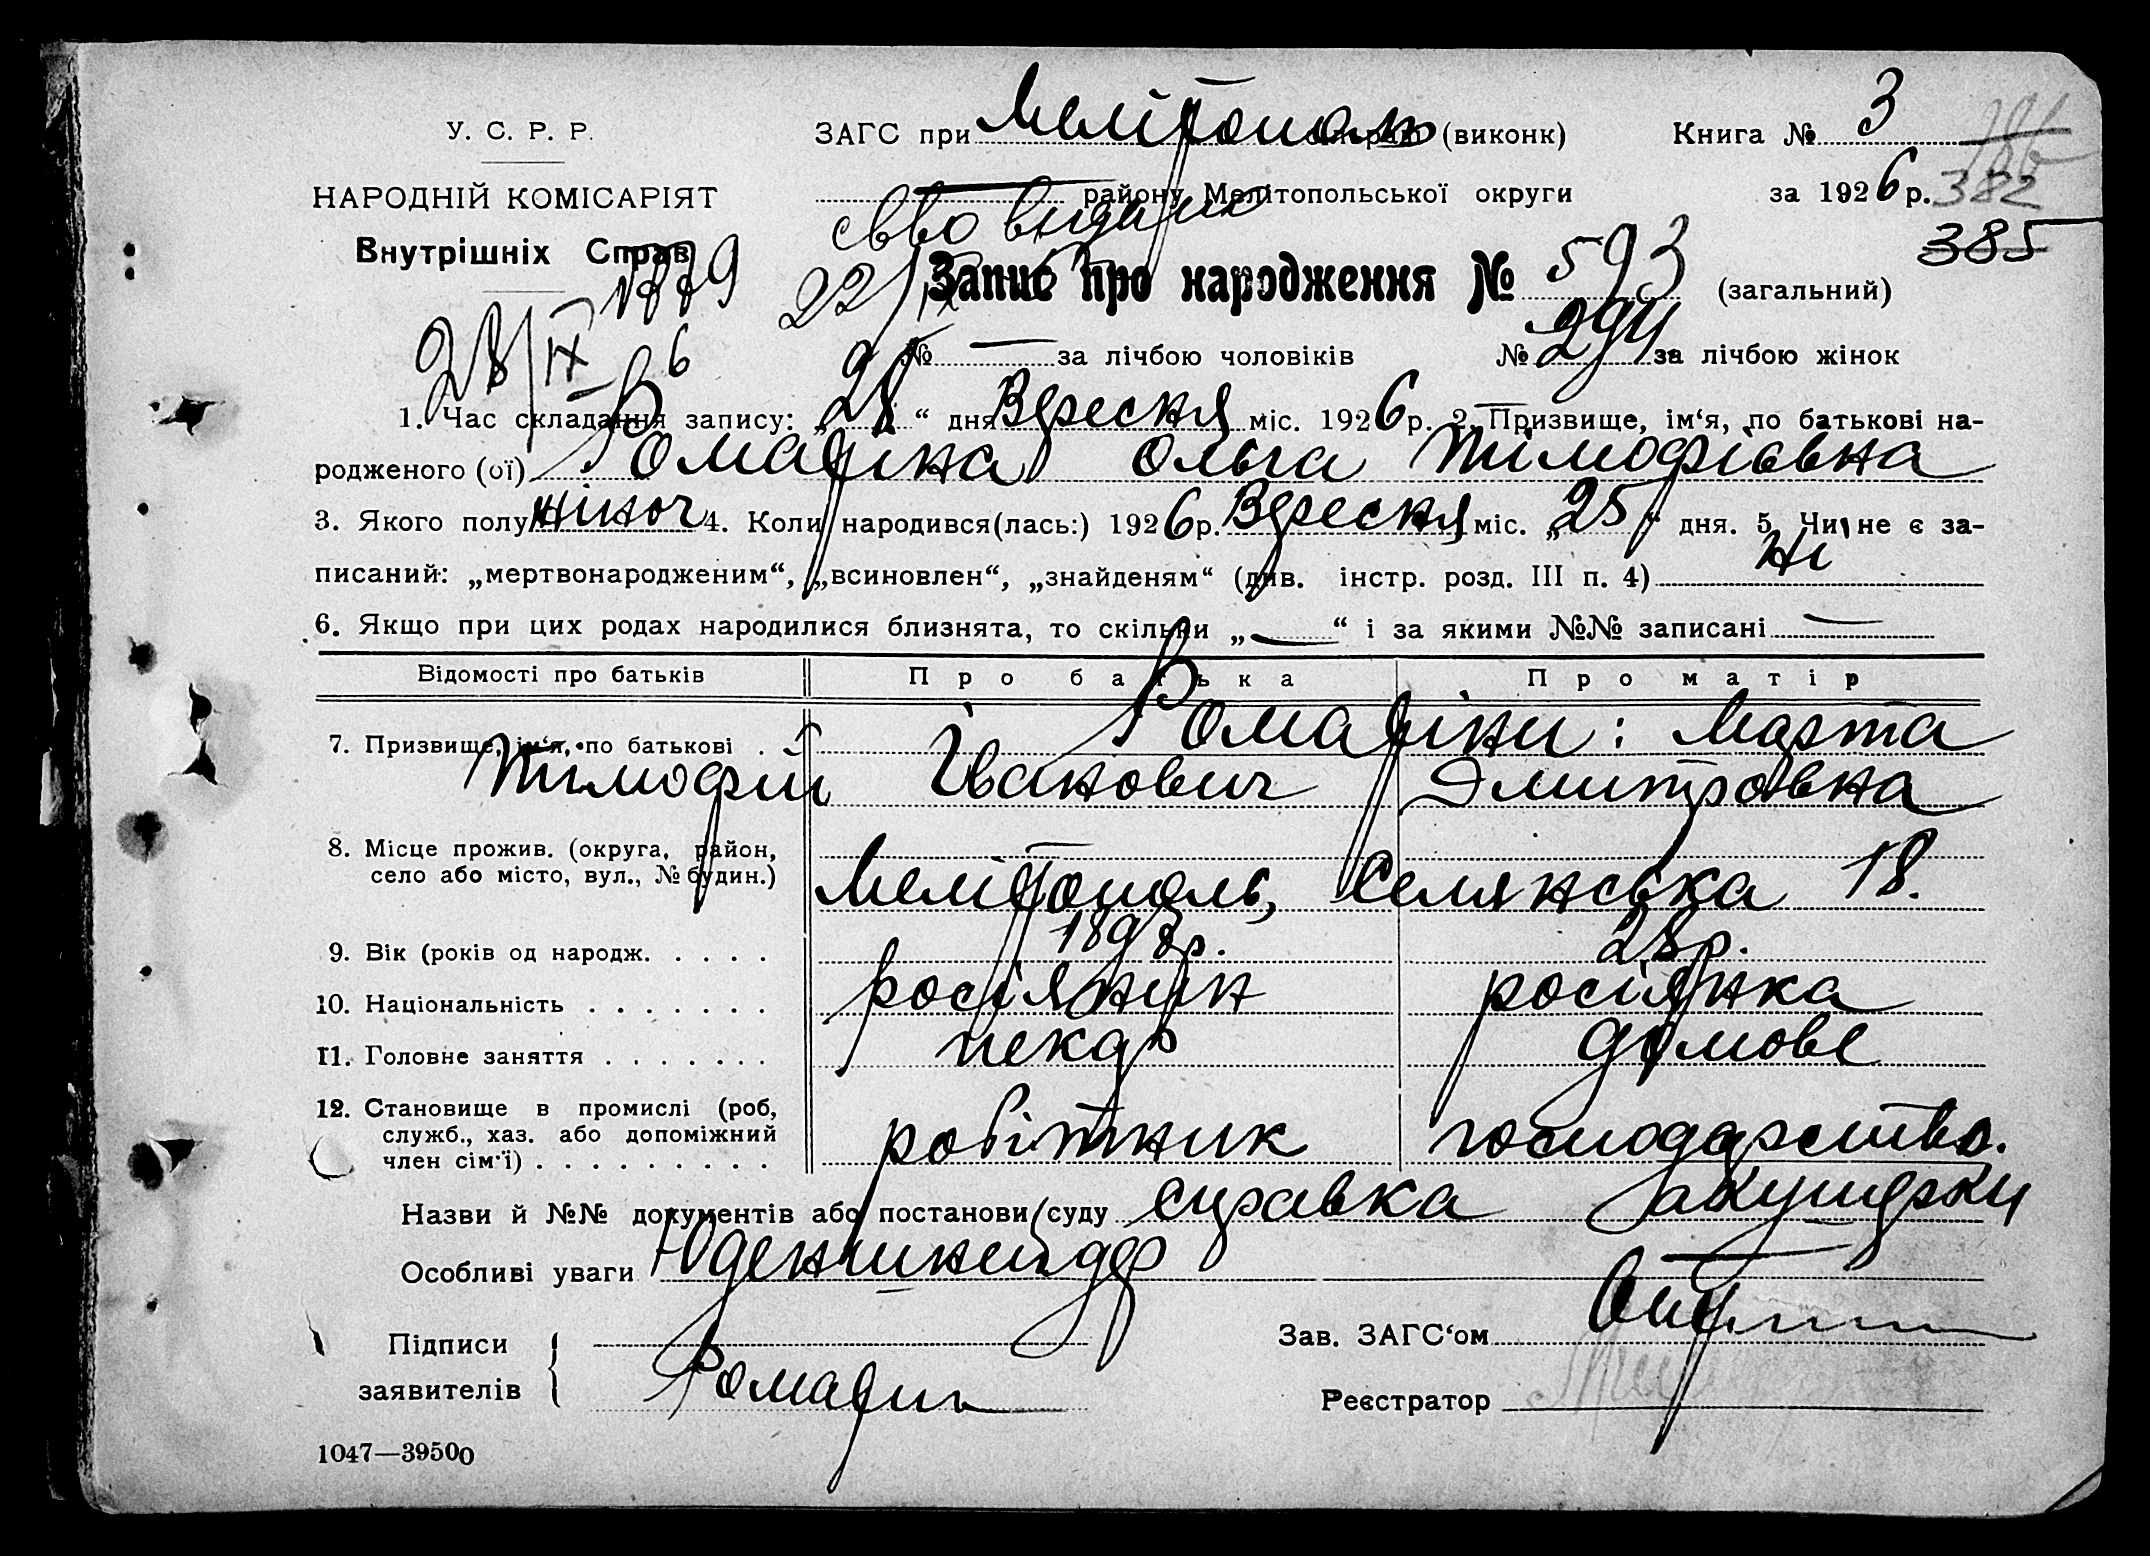 У. С. Р. Р.
ЗАГС при Мелітополь (виконк) Книга № 3
НАРОДНІЙ КОМІСАРІЯТ
району Мелітопольської округи за 1926 р. 382
Внутрішніх Справ
Свво видано 385
22/IX
Запис про народження № 593 (загальний)
28/IX 26
№ — за лічбою чоловіків № 294 за лічбою жінок
1. Час складання запису: „28“ дня Вересня міс. 1926 р. 2. Призвище, ім‘я, по батькові на-
родженого (ої) Ромадіна Ольга Тімофієвна
3. Якого полу жіноч 4. Коли народився(лась:) 1926 р. Вересня міс. „25“ дня. 5. Чи не є за-
писаний: „мертвонародженим“, „всиновлен“, „знайденям“ (див. інстр. розд. III п. 4) Ні
6. Якщо при цих родах народилися близнята, то скільки „—“ і за якими №№ записані —
Відомості про батьків Про батька Про матір
7. Призвище, ім‘я, по батькові . Ромадіни: Марта
Тімофій Іванович Дмитровна
8. Місце прожив. (округа, район,
село або місто, вул., № будин.) Мелітополь, Селянська 18.
9. Вік (років од народж. . . . . 1898р. 28р.
10. Національність . . . . . . . росіянин росіянка
11. Головне заняття . . . . . . . пекар домове
12. Становище в промислі (роб,
служб., хаз. або допоміжний
член сім‘ї) . . . . . . . . . робітник господарство.
Назви й №№ документів або постанови суду справка акушерки
Особливі уваги
Підписи
заявителів Ромадин
Зав. ЗАГС‘ом
Реєстратор
1047—39500